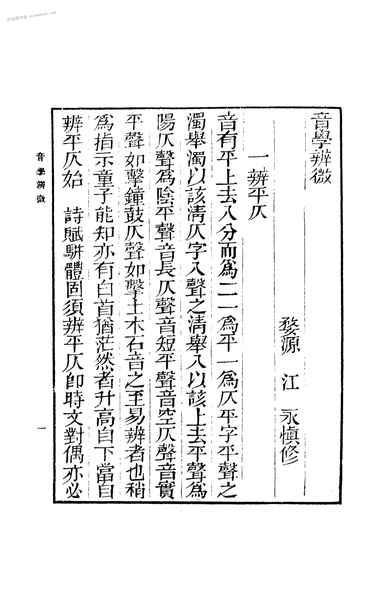 音學辨微
婺源 江 永慎修
一辨平仄
音有平上去入分而為二一為平一為仄平字平聲之
濁舉濁以該清仄字入聲之清舉入以該上去平聲為
陽仄聲為陰平聲音長仄聲音短平聲音空仄聲音實
平聲如擊鐘鼓仄聲如擊土木石音之至易辨者也稍
為指示童子能知亦有白首猶茫然者升高自下當自
辨平仄始 詩賦駢體固須辨平仄即時文對偶亦必
音學辨微
一